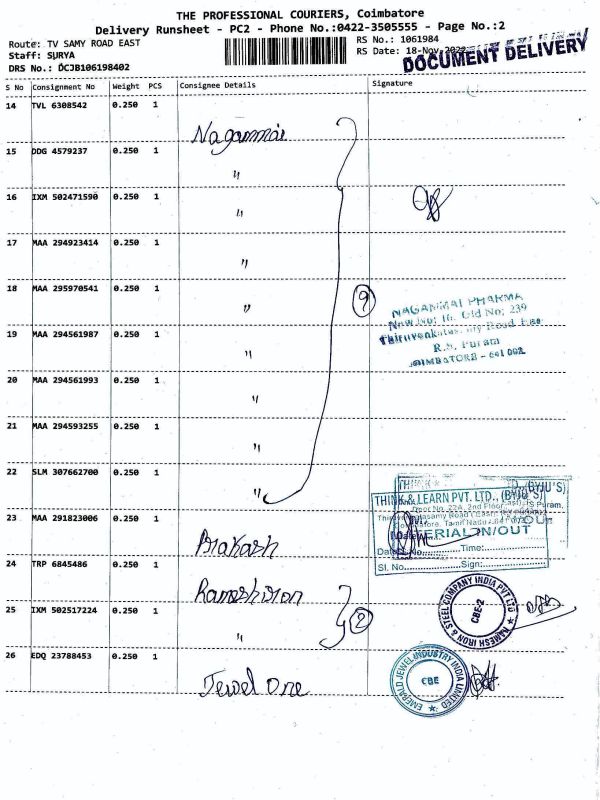 THE PROFESSIONAL COURIERS, Coimbatore
Delivery Runsheet - PC2 - Phone No.:0422-3505555 - Page No.:2
Route: TV SAMY ROAD EAST
RS No.: 1061984
Staff: SURYA
RS Date: 18-Nov-2022
DRS No.: DCJB106198402
DOCUMENT DELIVERY
S No Consignment No Weight PCS Consignee Details Signature
14 TVL 6308542 0.250 1 Nagammai
15 DDG 4579237 0.250 1 "
16 IXM 502471590 0.250 1 "
17 MAA 294923414 0.250 1 "
18 MAA 295970541 0.250 1 " 9
19 MAA 294561987 0.250 1 "
20 MAA 294561993 0.250 1 "
21 MAA 294593255 0.250 1 "
22 SLM 307662700 0.250 1 "
NAGAMMAI PHARMA
New No: 16, Old No: 239
R.S. Puram
COIMBATORE - 641 002.
23 MAA 291823006 0.250 1 Prakash
THINK & LEARN PVT. LTD., (BYJU'S)
MATERIAL IN/OUT
Time:
Sl. No. Sign:
24 TRP 6845486 0.250 1 Ramesh Iron
25 IXM 502517224 0.250 1 " 2
RAMESH IRON & STEEL COMPANY INDIA PVT LTD
CBE-2
26 EDQ 23788453 0.250 1 Jewel One
EMERALD JEWEL INDUSTRY INDIA LIMITED
CBE